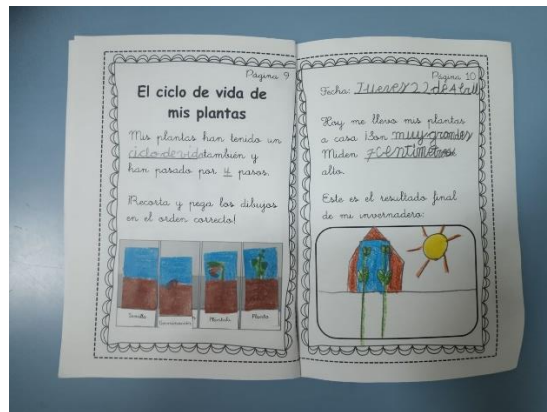 Página 9
El ciclo de vida de
mis plantas
Mis plantas han tenido un
ciclo de vida también y
han pasado por 4 pasos.
¡Recorta y pega los dibujos
en el orden correcto!
Semilla
Germinación
Plántula
Planta
Página 10
Fecha: Jueves 22 de
Hoy me llevo mis plantas
a casa ¡Son muy grandes
Miden 7 centímetros
alto.
Este es el resultado final
de mi invernadero: